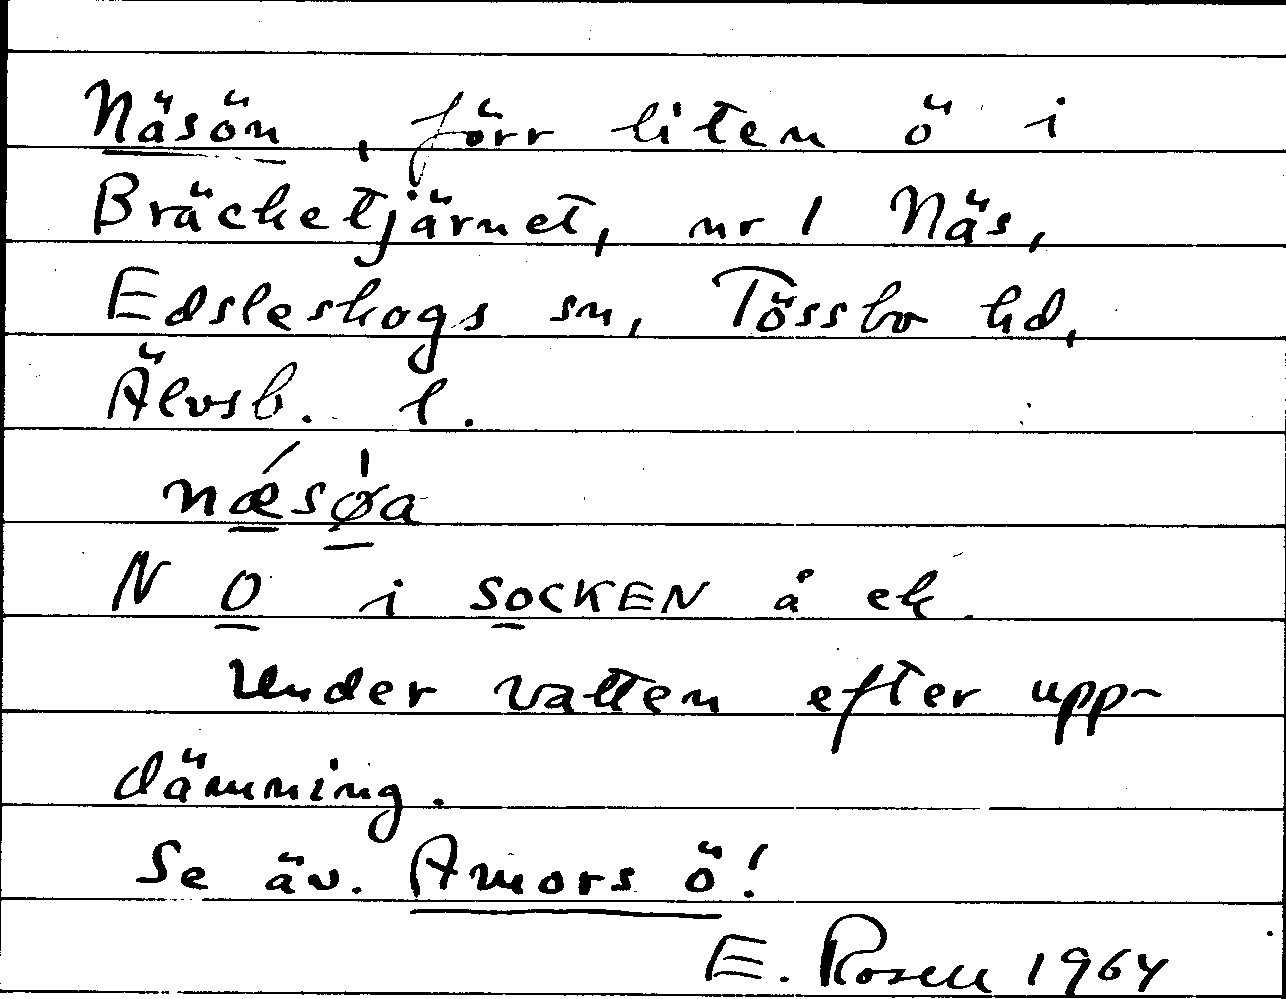 Näsön, förr liten ö i
Bräcketjärnet, nr 1 Näs,
Edsleskogs sn, Tössbo hd,
Älvsb. l.
nǽsø̍a
N O i SOCKEN å ek.
Under vatten efter upp-
dämning.
Se äv. Amors ö!
E. Rosell 1964